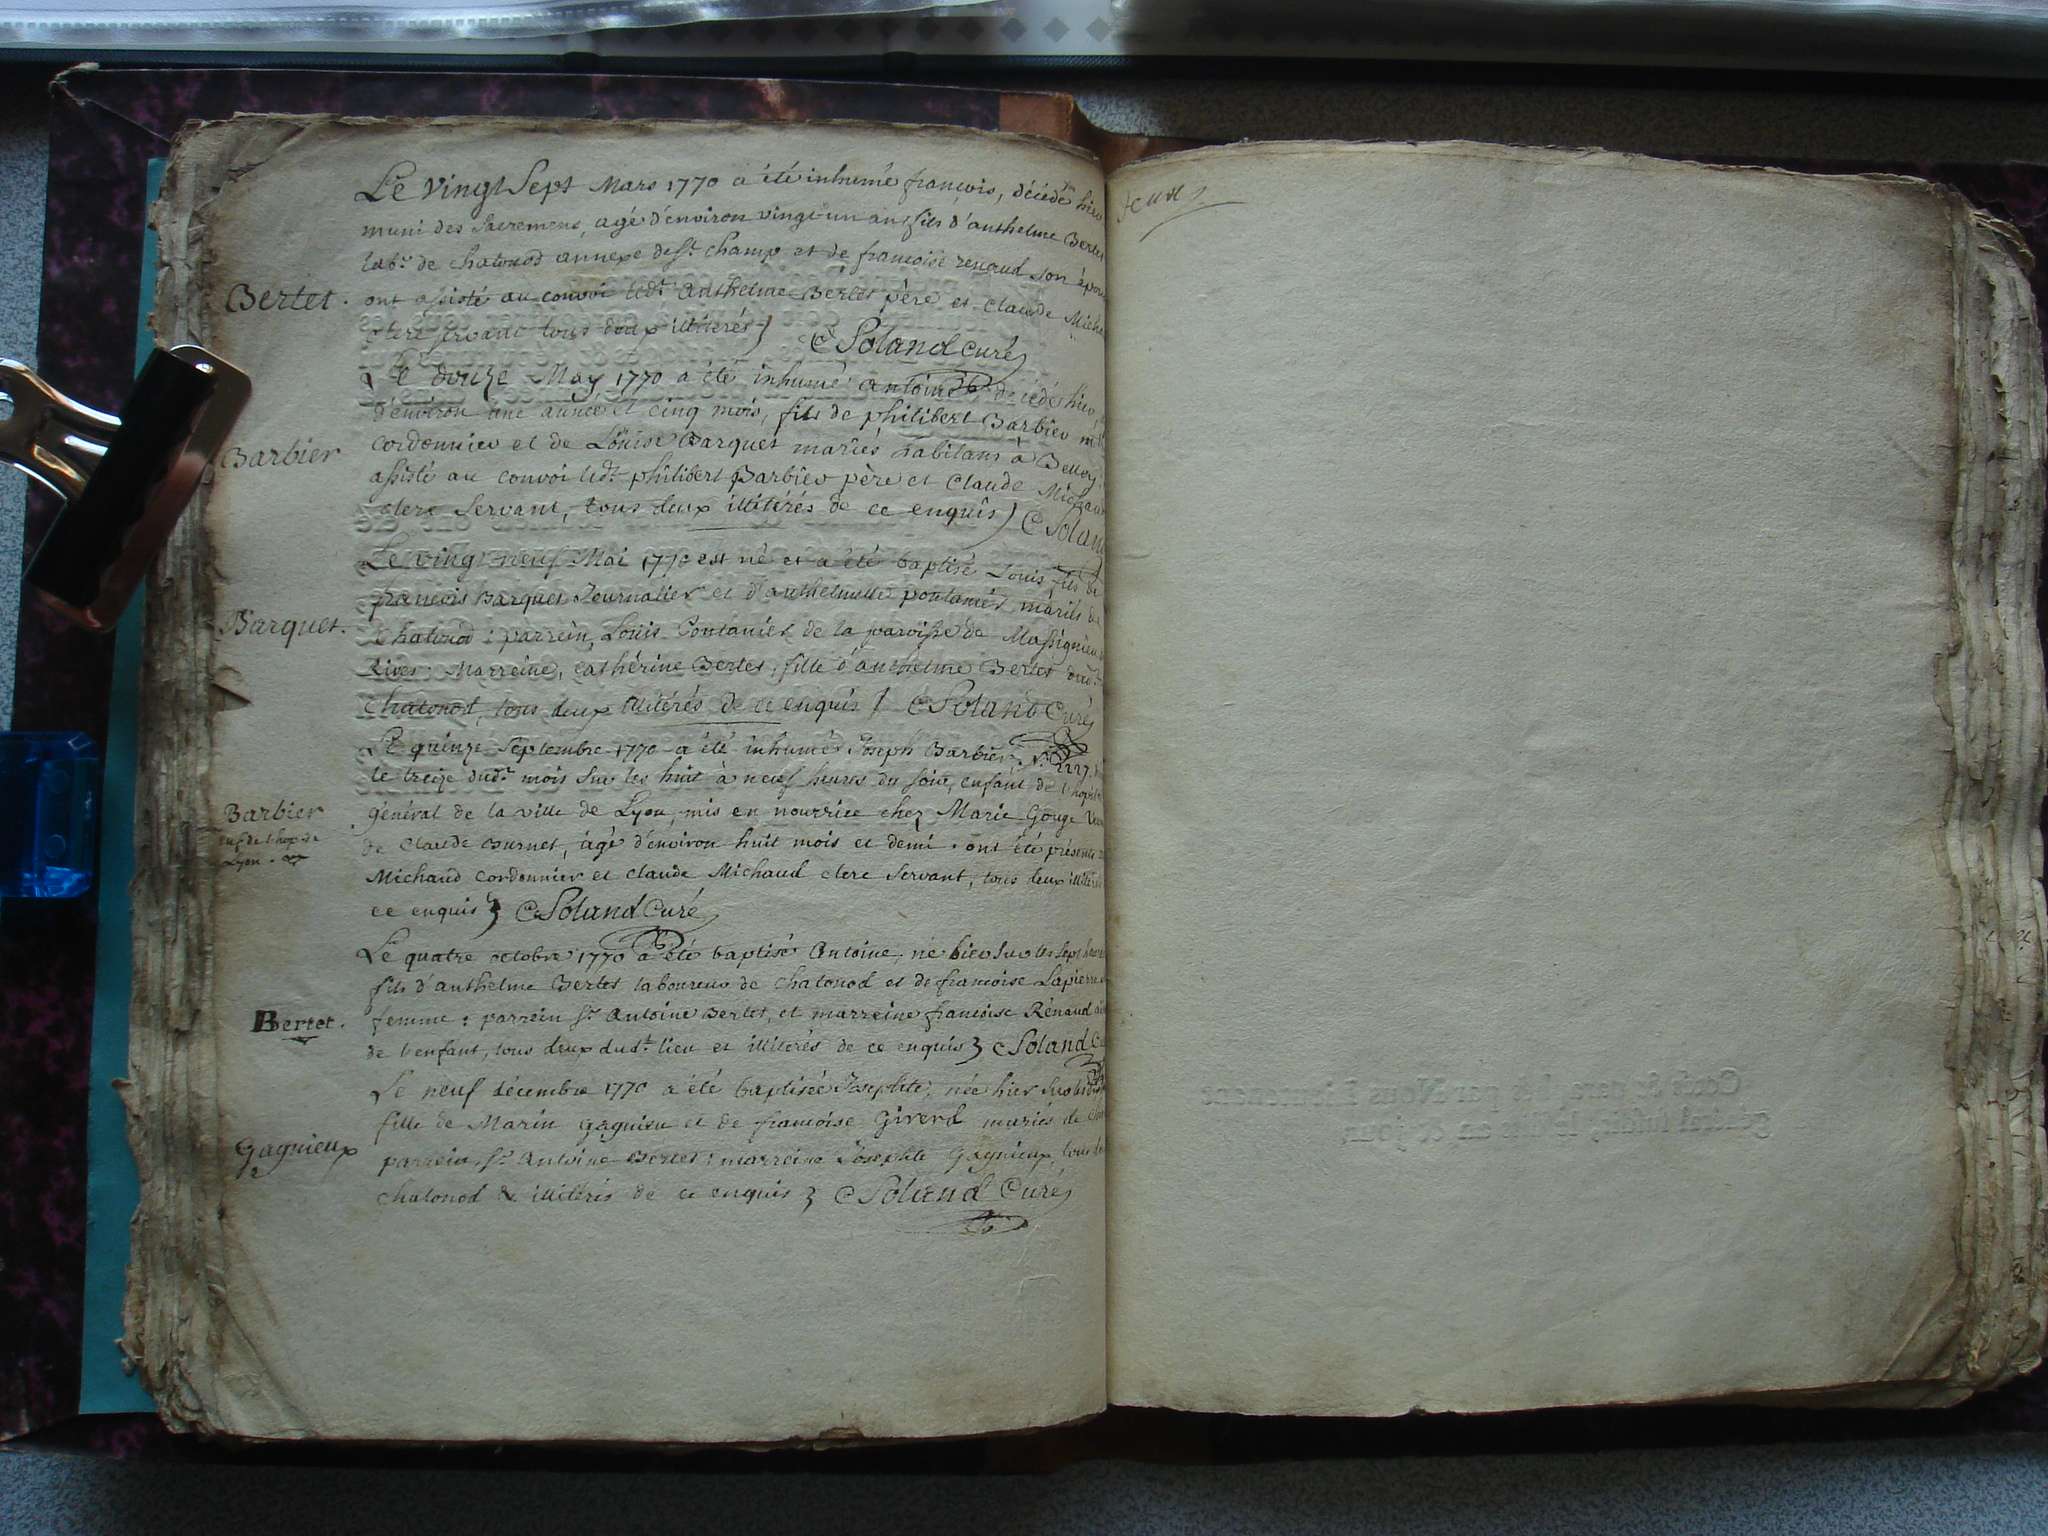 Le vingt Sept Mars 1770 a été inhumé françois, décédé hier
muni des Sacremens, agé d'environ vingt-un ans fils d'anthelme Bertet
lab.r de chatonod annexe de S.t champ et de francoise renaud son épou
Bertet. ont assisté au convoi led.t Anthelme Bertet père et Claude Micha
clerc servant tous deux illitérés } C Poland curé
Le douze May 1770 a été inhumé antoine décédé hier
d'environ une année et cinq mois, fils de philibert Barbier
Barbier cordonnier et de Loüise Barquet mariés habitans à Belley
assisté au convoi led.t philibert Barbier père et Claude Michau
clerc Servant, tous deux illitérés de ce enquis } C Poland
Le vingt-neuf Mai 1770 est né et a été baptisé Louis fils de
francois Barquet Journalier et d'anthelmette pontanier mariés de
Barquet. Chatonod : parrein, Loüis Pontanier de la paroisse de Massignieu
Rives: Marreine, cathérine Bertet, fille d'anthelme Bertet dud.t
Chatonod, tous deux illitérés de ce enquis } C Poland Curé
Le quinze Septembre 1770 a été inhumé Joseph Barbier, N.° 2227.
le treize dud.t mois sur les huit à neuf heures du soir, enfant de l'hopita
Barbier général de la ville de Lyon, mis en nourrice chez Marie Gouge
enf. de l'hop. de
Lyon.
de Claude Burnet, âgé d'environ huit mois et demi. ont été présents
Michaud cordonnier et claude Michaud clerc Servant, tous deux illitér
ce enquis } C Poland Curé
Le quatre octobre 1770 a été baptisé Antoine, né hier sur les sept heur
fils d'anthelme Bertet laboureur de chatonod et de francoise Lapierre
Bertet. femme : parrein S.r Antoine Bertet, et marreine francoise Rénaud
de l'enfant, tous deux dud.t lieu et illitérés de ce enquis } C Poland
Le neuf décembre 1770 a été baptisée Josephte, née hier sur les
fille de Marin gagnieu et de francoise Girerd mariés de
Gagnieux parrein S.r Antoine Bertet : marreine Josephte Gagnieux, tous
chatonod & illitérés de ce enquis } C Poland Curé